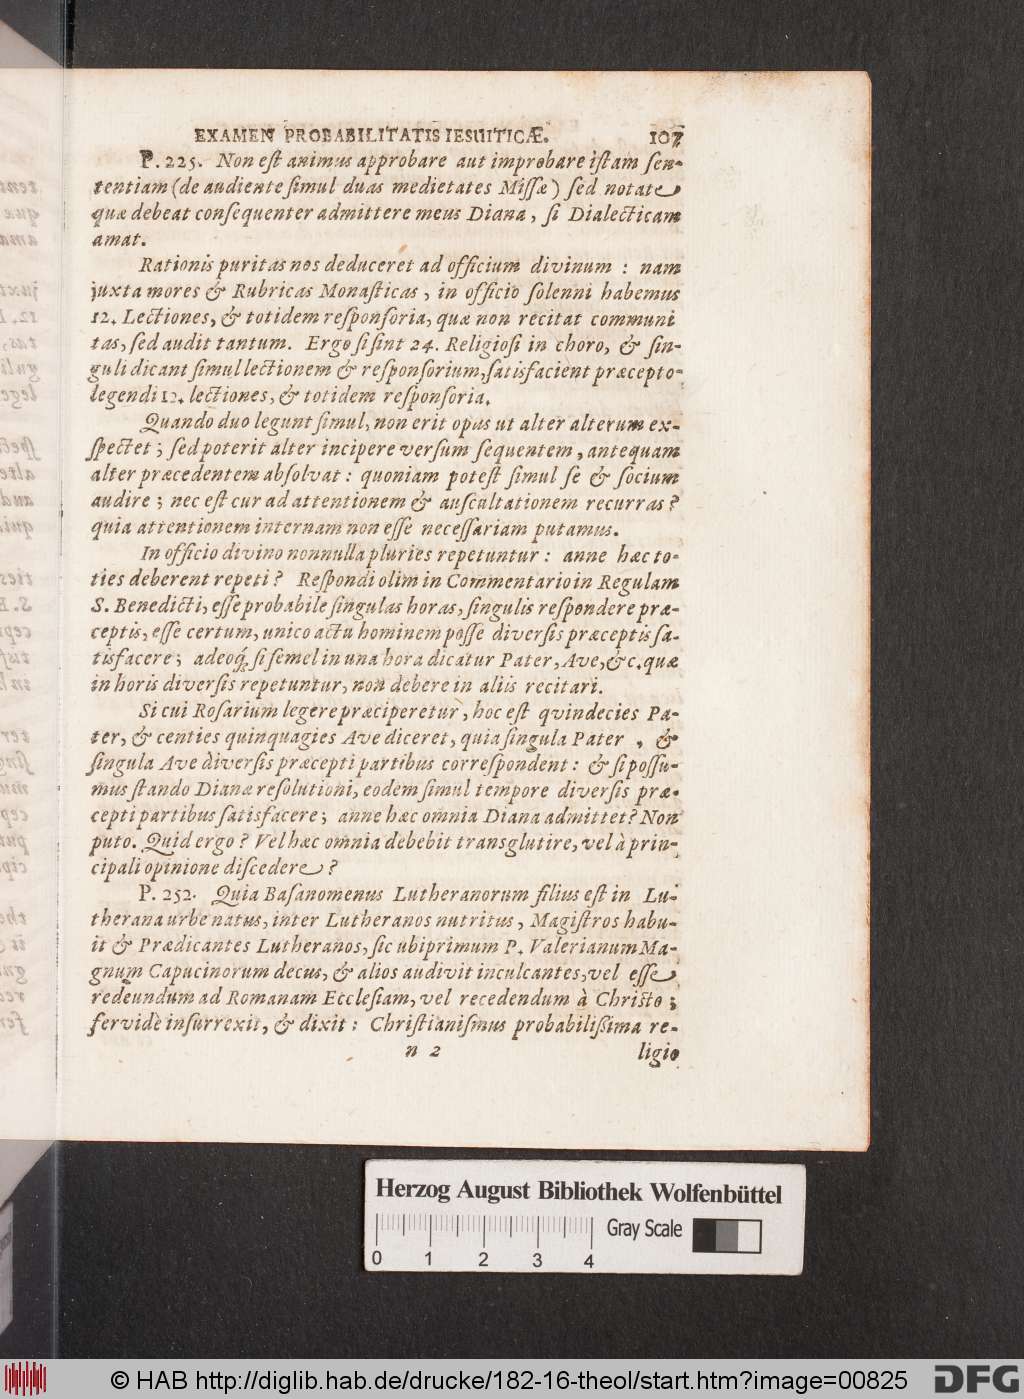 EXAMEN PROBABILITATIS IESUITICÆ. 107
P. 225. Non eſt animus approbare aut improbare iſtam ſen-
tentiam (de audiente ſimul duas medietates Miſſæ) ſed notate
quæ debeat conſequenter admittere meus Diana, ſi Dialecticam
amat.
Rationis puritas nos deduceret ad officium divinum : nam
juxta mores & Rubricas Monaſticas, in officio ſolenni habemus
12. Lectiones, & totidem reſponſoria, quæ non recitat communi
tas, ſed audit tantum. Ergo ſi ſint 24. Religioſi in choro, & ſin-
guli dicant ſimul lectionem & reſponſorium, ſatisfacient præcepto
legendi 12. lectiones, & totidem reſponſoria.
Quando duo legunt ſimul, non erit opus ut alter alterum ex-
ſpectet ; ſed poterit alter incipere verſum ſequentem, antequam
alter præcedentem abſolvat : quoniam poteſt ſimul ſe & ſocium
audire ; nec eſt cur ad attentionem & auſcultationem recurras ?
quia attentionem internam non eſſe neceſſariam putamus.
In officio divino nonnulla pluries repetuntur : anne hæc to-
ties deberent repeti ? Reſpondi olim in Commentario in Regulam
S. Benedicti, eſſe probabile ſingulas horas, ſingulis reſpondere præ-
ceptis, eſſe certum, unico actu hominem poſſe diverſis præceptis ſa-
tisfacere ; adeoq́; ſi ſemel in una hora dicatur Pater, Ave, &c. quæ
in horis diverſis repetuntur, non debere in aliis recitari.
Si cui Roſarium legere præciperetur, hoc eſt qvindecies Pa-
ter, & centies quinquagies Ave diceret, quia ſingula Pater , &
ſingula Ave diverſis præcepti partibus correſpondent : & ſi poſſu-
mus ſtando Dianæ reſolutioni, eodem ſimul tempore diverſis præ-
cepti partibus ſatisfacere ; anne hæc omnia Diana admittet ? Non
puto. Quid ergo ? Vel hæc omnia debebit transglutire, vel à prin-
cipali opinione diſcedere ?
P. 252. Quia Baſanomenus Lutheranorum filius eſt in Lu-
therana urbe natus, inter Lutheranos nutritus, Magiſtros habu-
it & Prædicantes Lutheranos, ſic ubi primum P. Valerianum Ma-
gnum Capucinorum decus, & alios audivit inculcantes, vel eſſe
redeundum ad Romanam Eccleſiam, vel recedendum à Chriſto ;
fervidè inſurrexit, & dixit : Chriſtianiſmus probabiliſſima re-
n 2 ligio
Herzog August Bibliothek Wolfenbüttel
Gray Scale
0 1 2 3 4
© HAB http://diglib.hab.de/drucke/182-16-theol/start.htm?image=00825
DFG